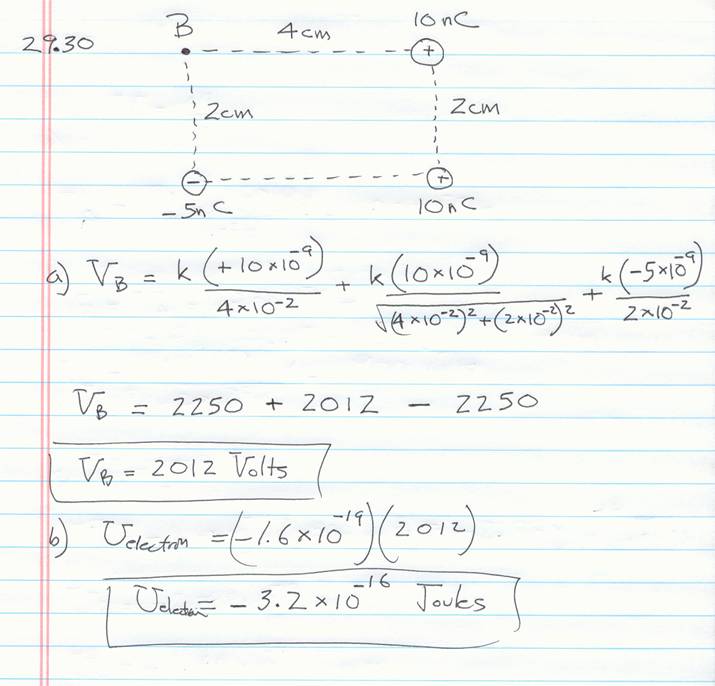 29.30 B 4cm 10nC
+
2cm 2cm
− +
-5nC 10nC
a) V_B = k(+10×10^-9)/(4×10^-2) + k(10×10^-9)/√((4×10^-2)^2+(2×10^-2)^2) + k(-5×10^-9)/(2×10^-2)
V_B = 2250 + 2012 - 2250
V_B = 2012 Volts
b) U_electron = (-1.6×10^-19)(2012)
U_electron = -3.2×10^-16 Joules